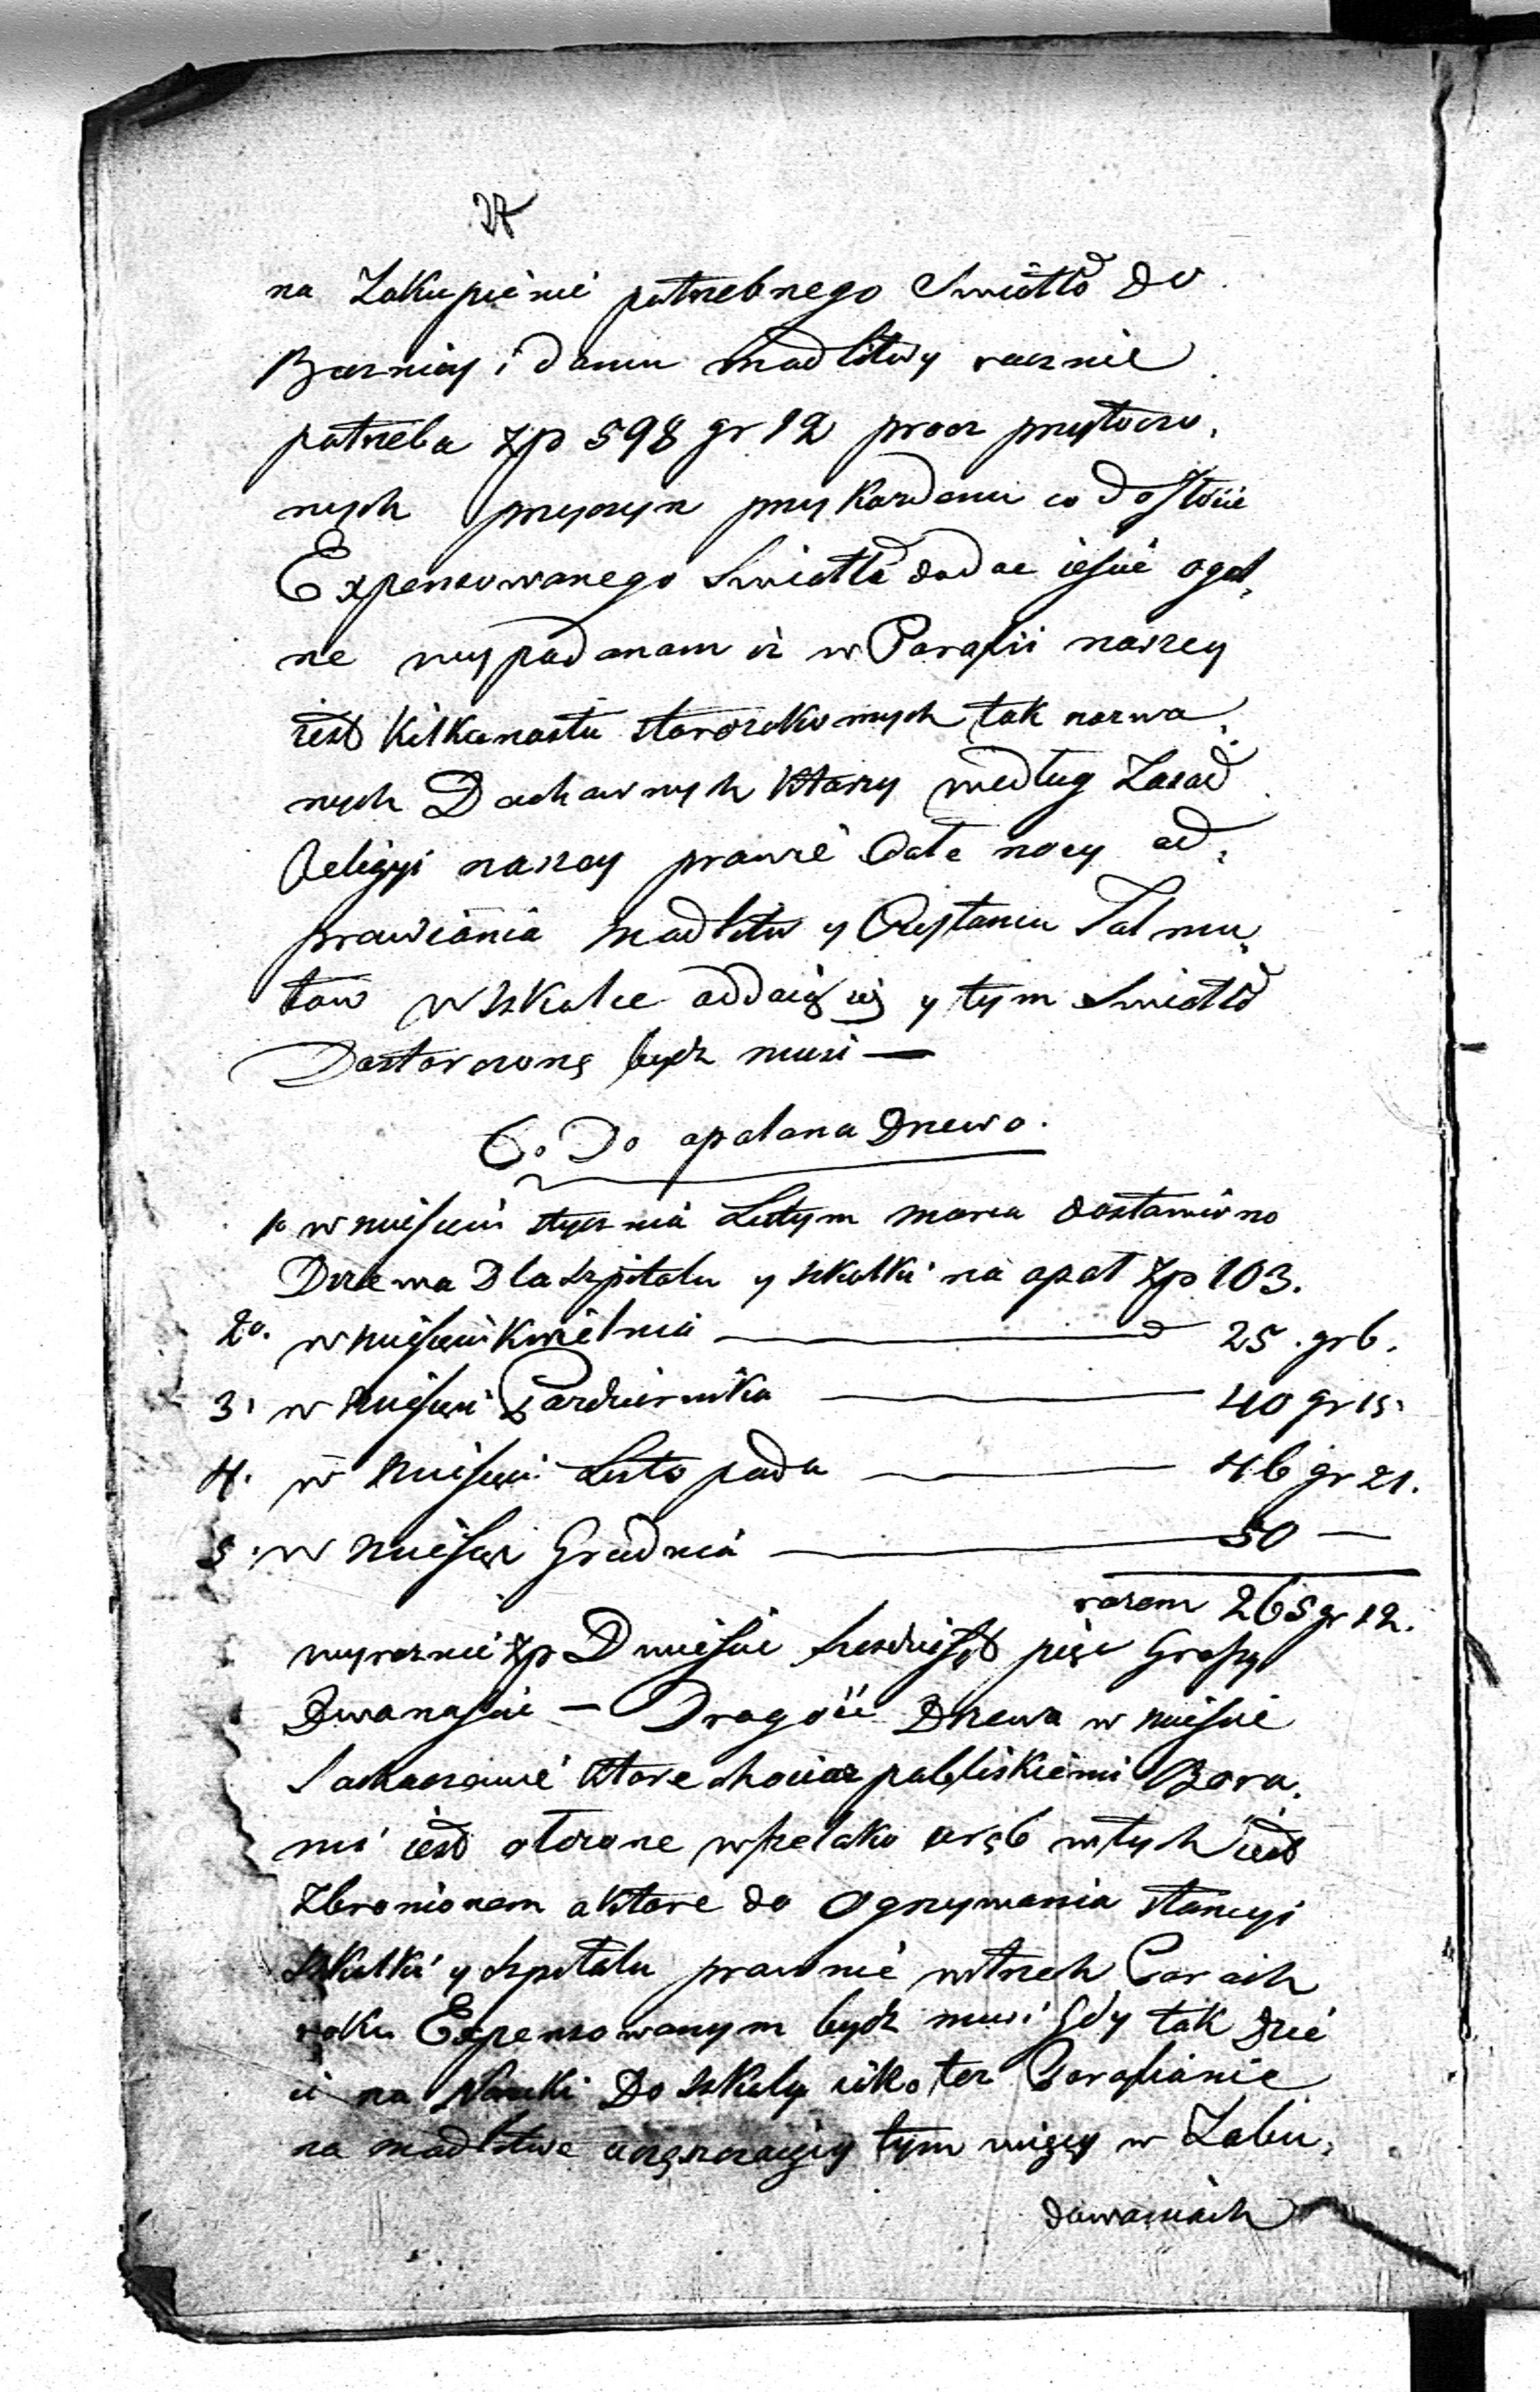 27
na Zakupienié potrzebnego Swiatła do
Buznicy i domu madlitwy rocznie
potrzeba zp 598 gr 12 procz przytoczo,
nych przyczyn przy kazdemu co do Ilosci
Expensowanego Swiatła dodac iescie ogol,
ne wypada nam iz w Parafii naszey
iest kilkunastu starozakonnych tak nazwa,
nych Duchownych ktorzy według Zasad
Religyi naszey prawie Całe nocy od,
prawiania madlitw y Czytaniu Talmu,
tow w szkolce oddaią się y tym Swiatło
Dostarczone bydz musi —
C. Do opalana Drzewo.
1o w miesiącu stycznia Lutym marca dostawiono
Drzewa Dla szpitalu y szkolki na opał zp 103.
2o. w miesiącu kwietnia — 25. gr 6.
3. w miesiącu Pazdziernika — 40 gr 15.
4. w miesiącu Listopada — 46 gr 21.
5. w miesiącu Grudnia — 50 —
razem 265 gr 12.
wyraznie zp Dwiescie szesdziesiąt pięc Groszy
Dwanascie — Drogość Drzewa w miescie
Sochaczewie ktore chociaz pobliskiemi Bora,
mi iest otoczone wszelako wrąb w tych iest
zbronionem a ktore do Ogrzywania stancyi
szkolki y szpitalu prawnie w trzech Porach
roku Expensowanym bydz musi gdy tak dzie
ci na Nauki Do szkoly iako tez Parafianie
na madlitwe uczęszczaiący tym więcy w Zabu,
dowaniach